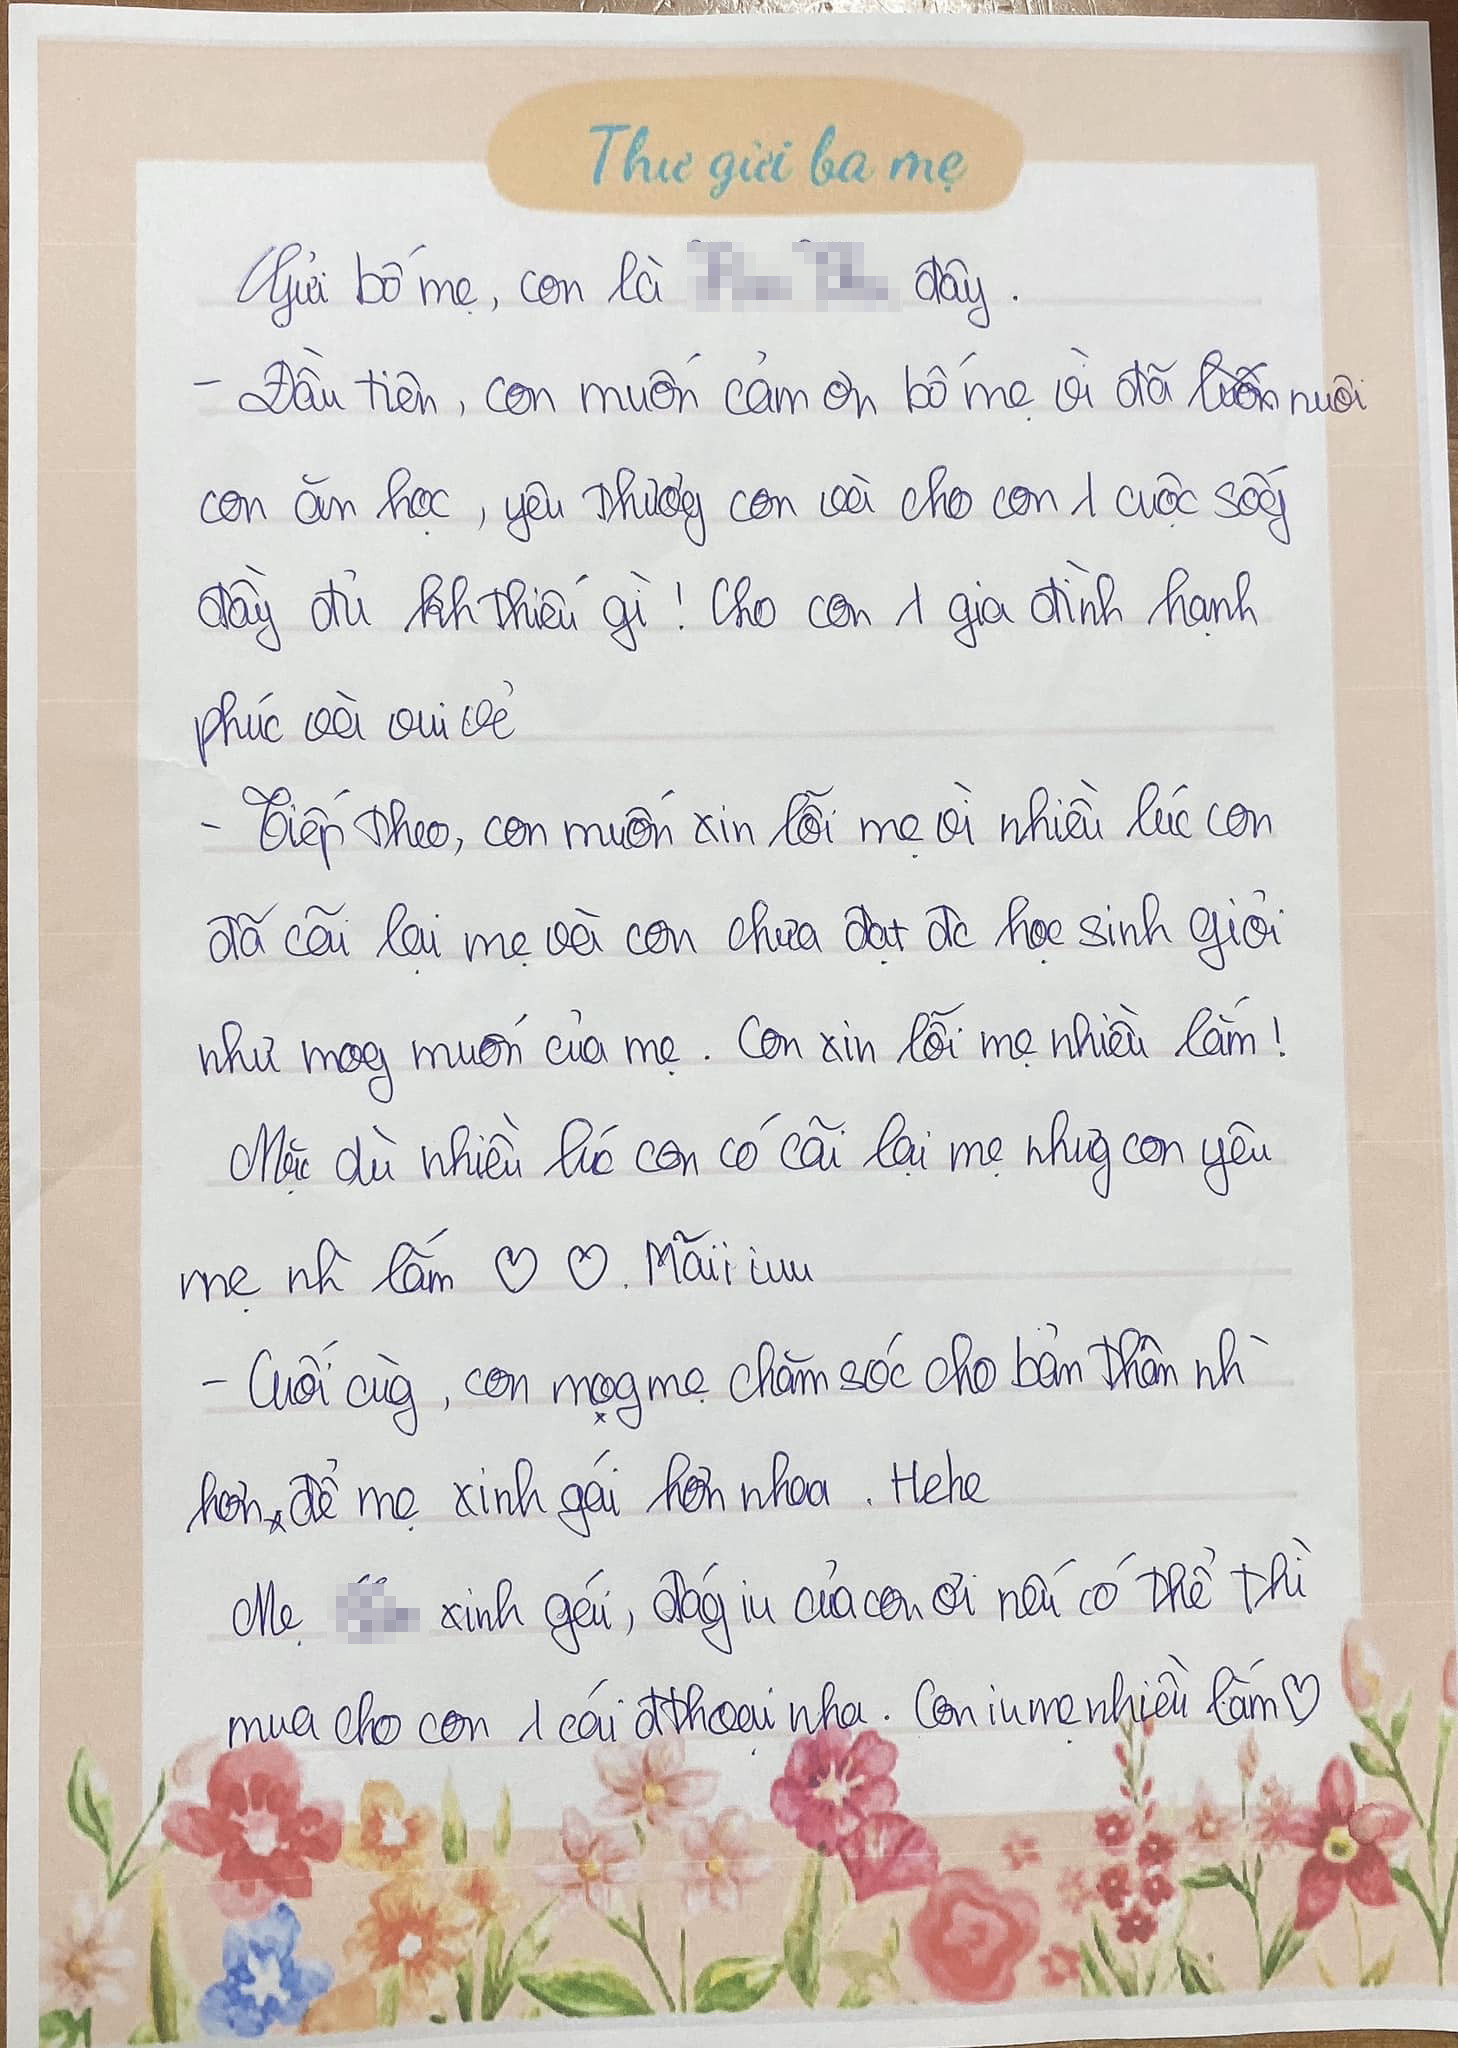 Thư gửi ba mẹ
Gửi bố mẹ, con là đây.
- Đầu tiên, con muốn cảm ơn bố mẹ vì đã luôn nuôi
con ăn học, yêu thươg con và cho con 1 cuộc sốg
đầy đủ kh thiếu gì! Cho con 1 gia đình hạnh
phúc và vui vẻ
- Tiếp theo, con muốn xin lỗi mẹ vì nhiều lúc con
đã cãi lại mẹ và con chưa đạt đc học sinh giỏi
như mog muốn của mẹ. Con xin lỗi mẹ nhiều lắm!
Mặc dù nhiều lúc con có cãi lại mẹ nhưg con yêu
mẹ nh` lắm ♡ ♡. Mãii iuu
- Cuối cùg, con mog mẹ chăm sóc cho bản thân nh`
hơn để mẹ xinh gái hơn nhaa. Hehe
Mẹ xinh gái, đág iu của con ơi nếu có thể thì
mua cho con 1 cái đthoại nha. Con iu mẹ nhiều lắm ♡